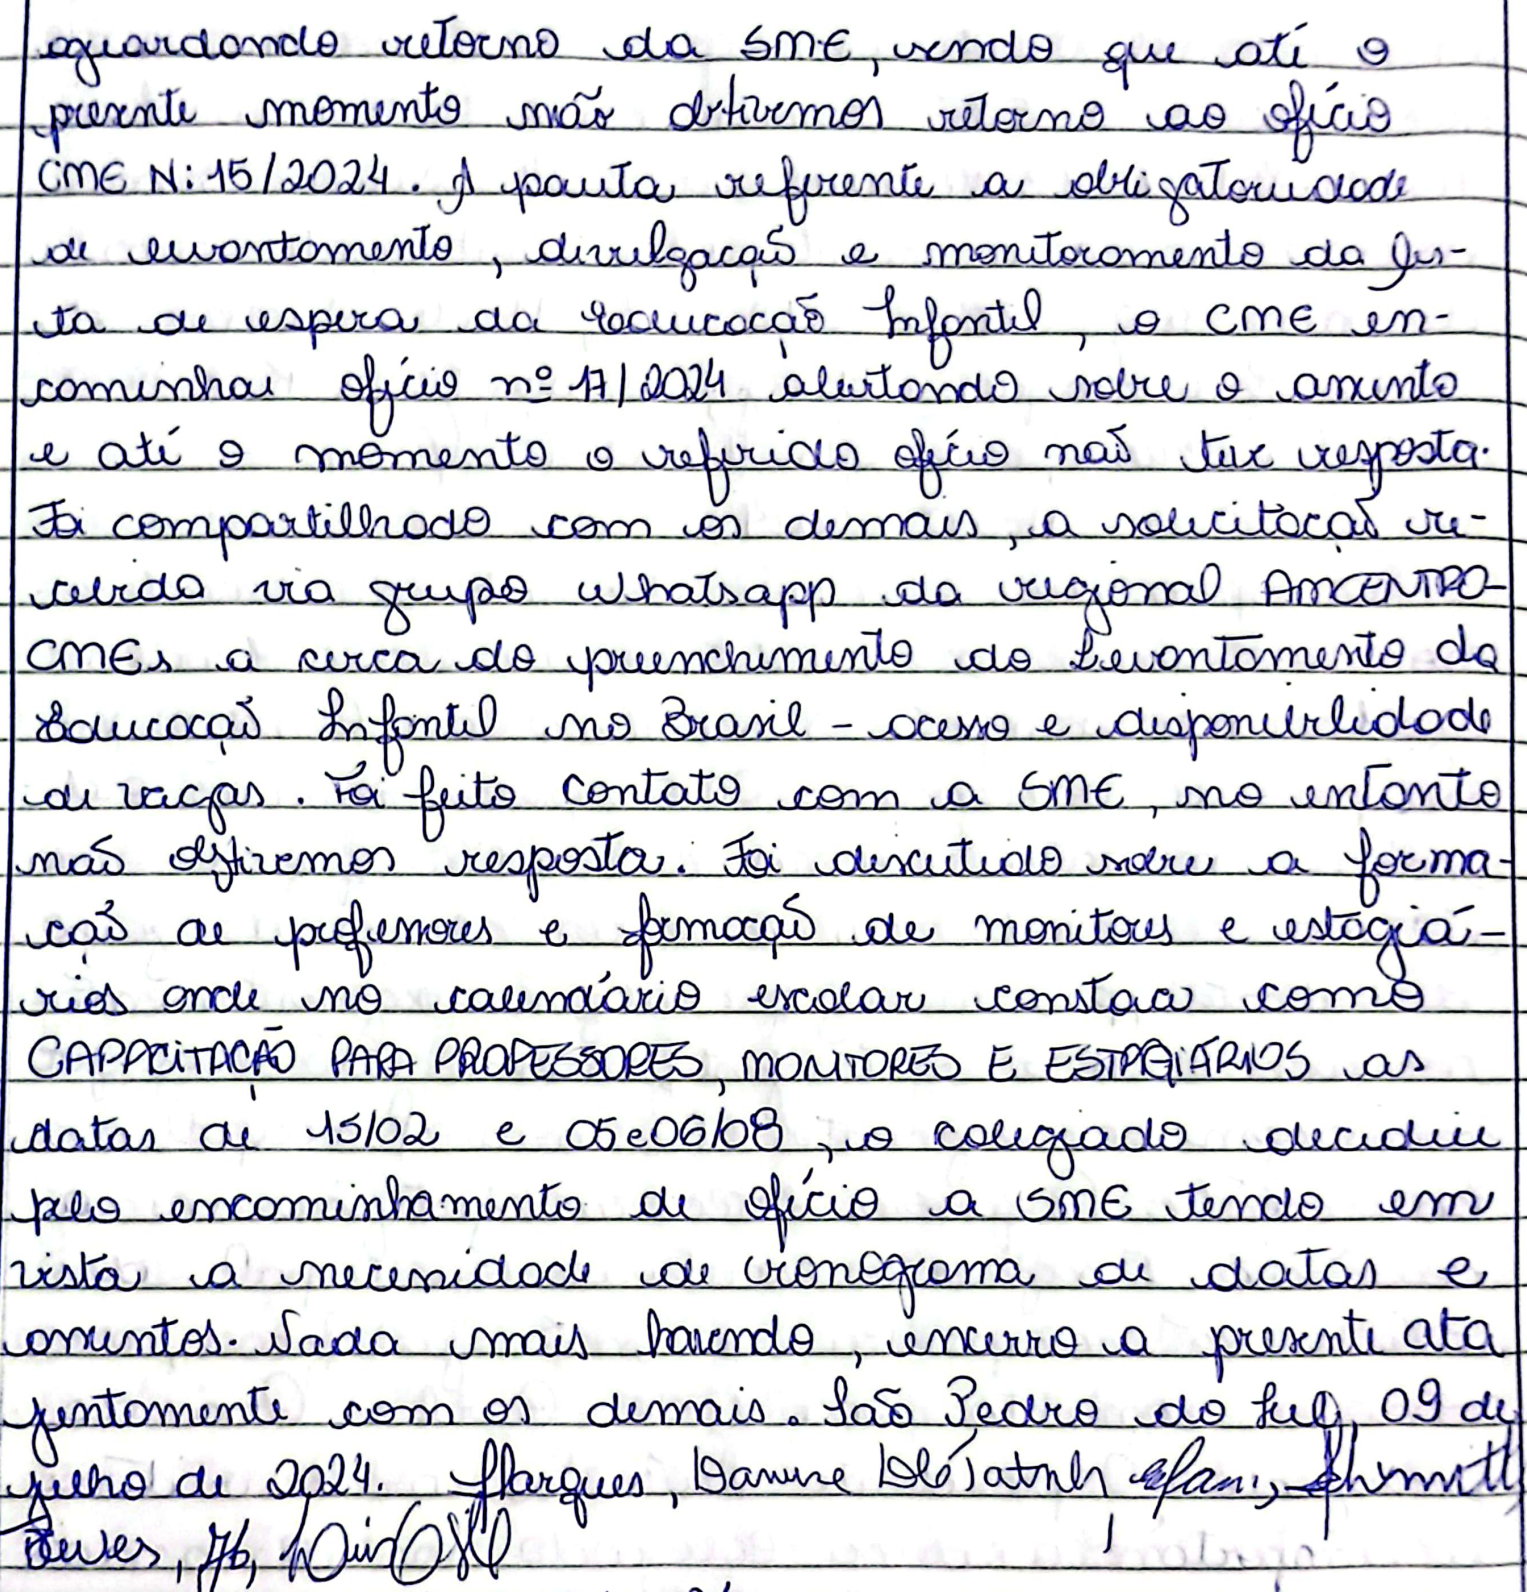 aguardando retorno da SME, sendo que até o
presente momento não obtivemos retorno ao ofício
CME N: 15/2024. A pauta referente a obrigatoriedade
de levantamento, divulgação e monitoramento da lis-
ta de espera da Educação Infantil, o CME en-
caminhou ofício nº 17/2024 alertando sobre o assunto
e até o momento o referido ofício não teve resposta.
Foi compartilhado com os demais, a solicitação re-
cebida via grupo Whatsapp da regional AMCENTRO-
CMEs a cerca do preenchimento do Levantamento da
Educação Infantil no Brasil - acesso e disponibilidade
de vagas. Foi feito contato com a SME, no entanto
não obtivemos resposta. Foi discutido sobre a forma-
ção de professores e formação de monitores e estagiá-
rios onde no calendário escolar consta como
CAPACITAÇÃO PARA PROFESSORES, MONITORES E ESTAGIÁRIOS as
datas de 15/02 e 05 e 06/08, o colegiado decidiu
pelo encaminhamento de ofício a SME tendo em
vista a necessidade de cronograma de datas e
assuntos. Nada mais havendo, encerro a presente ata
juntamente com os demais. São Pedro do Sul, 09 de
julho de 2024. Marques,